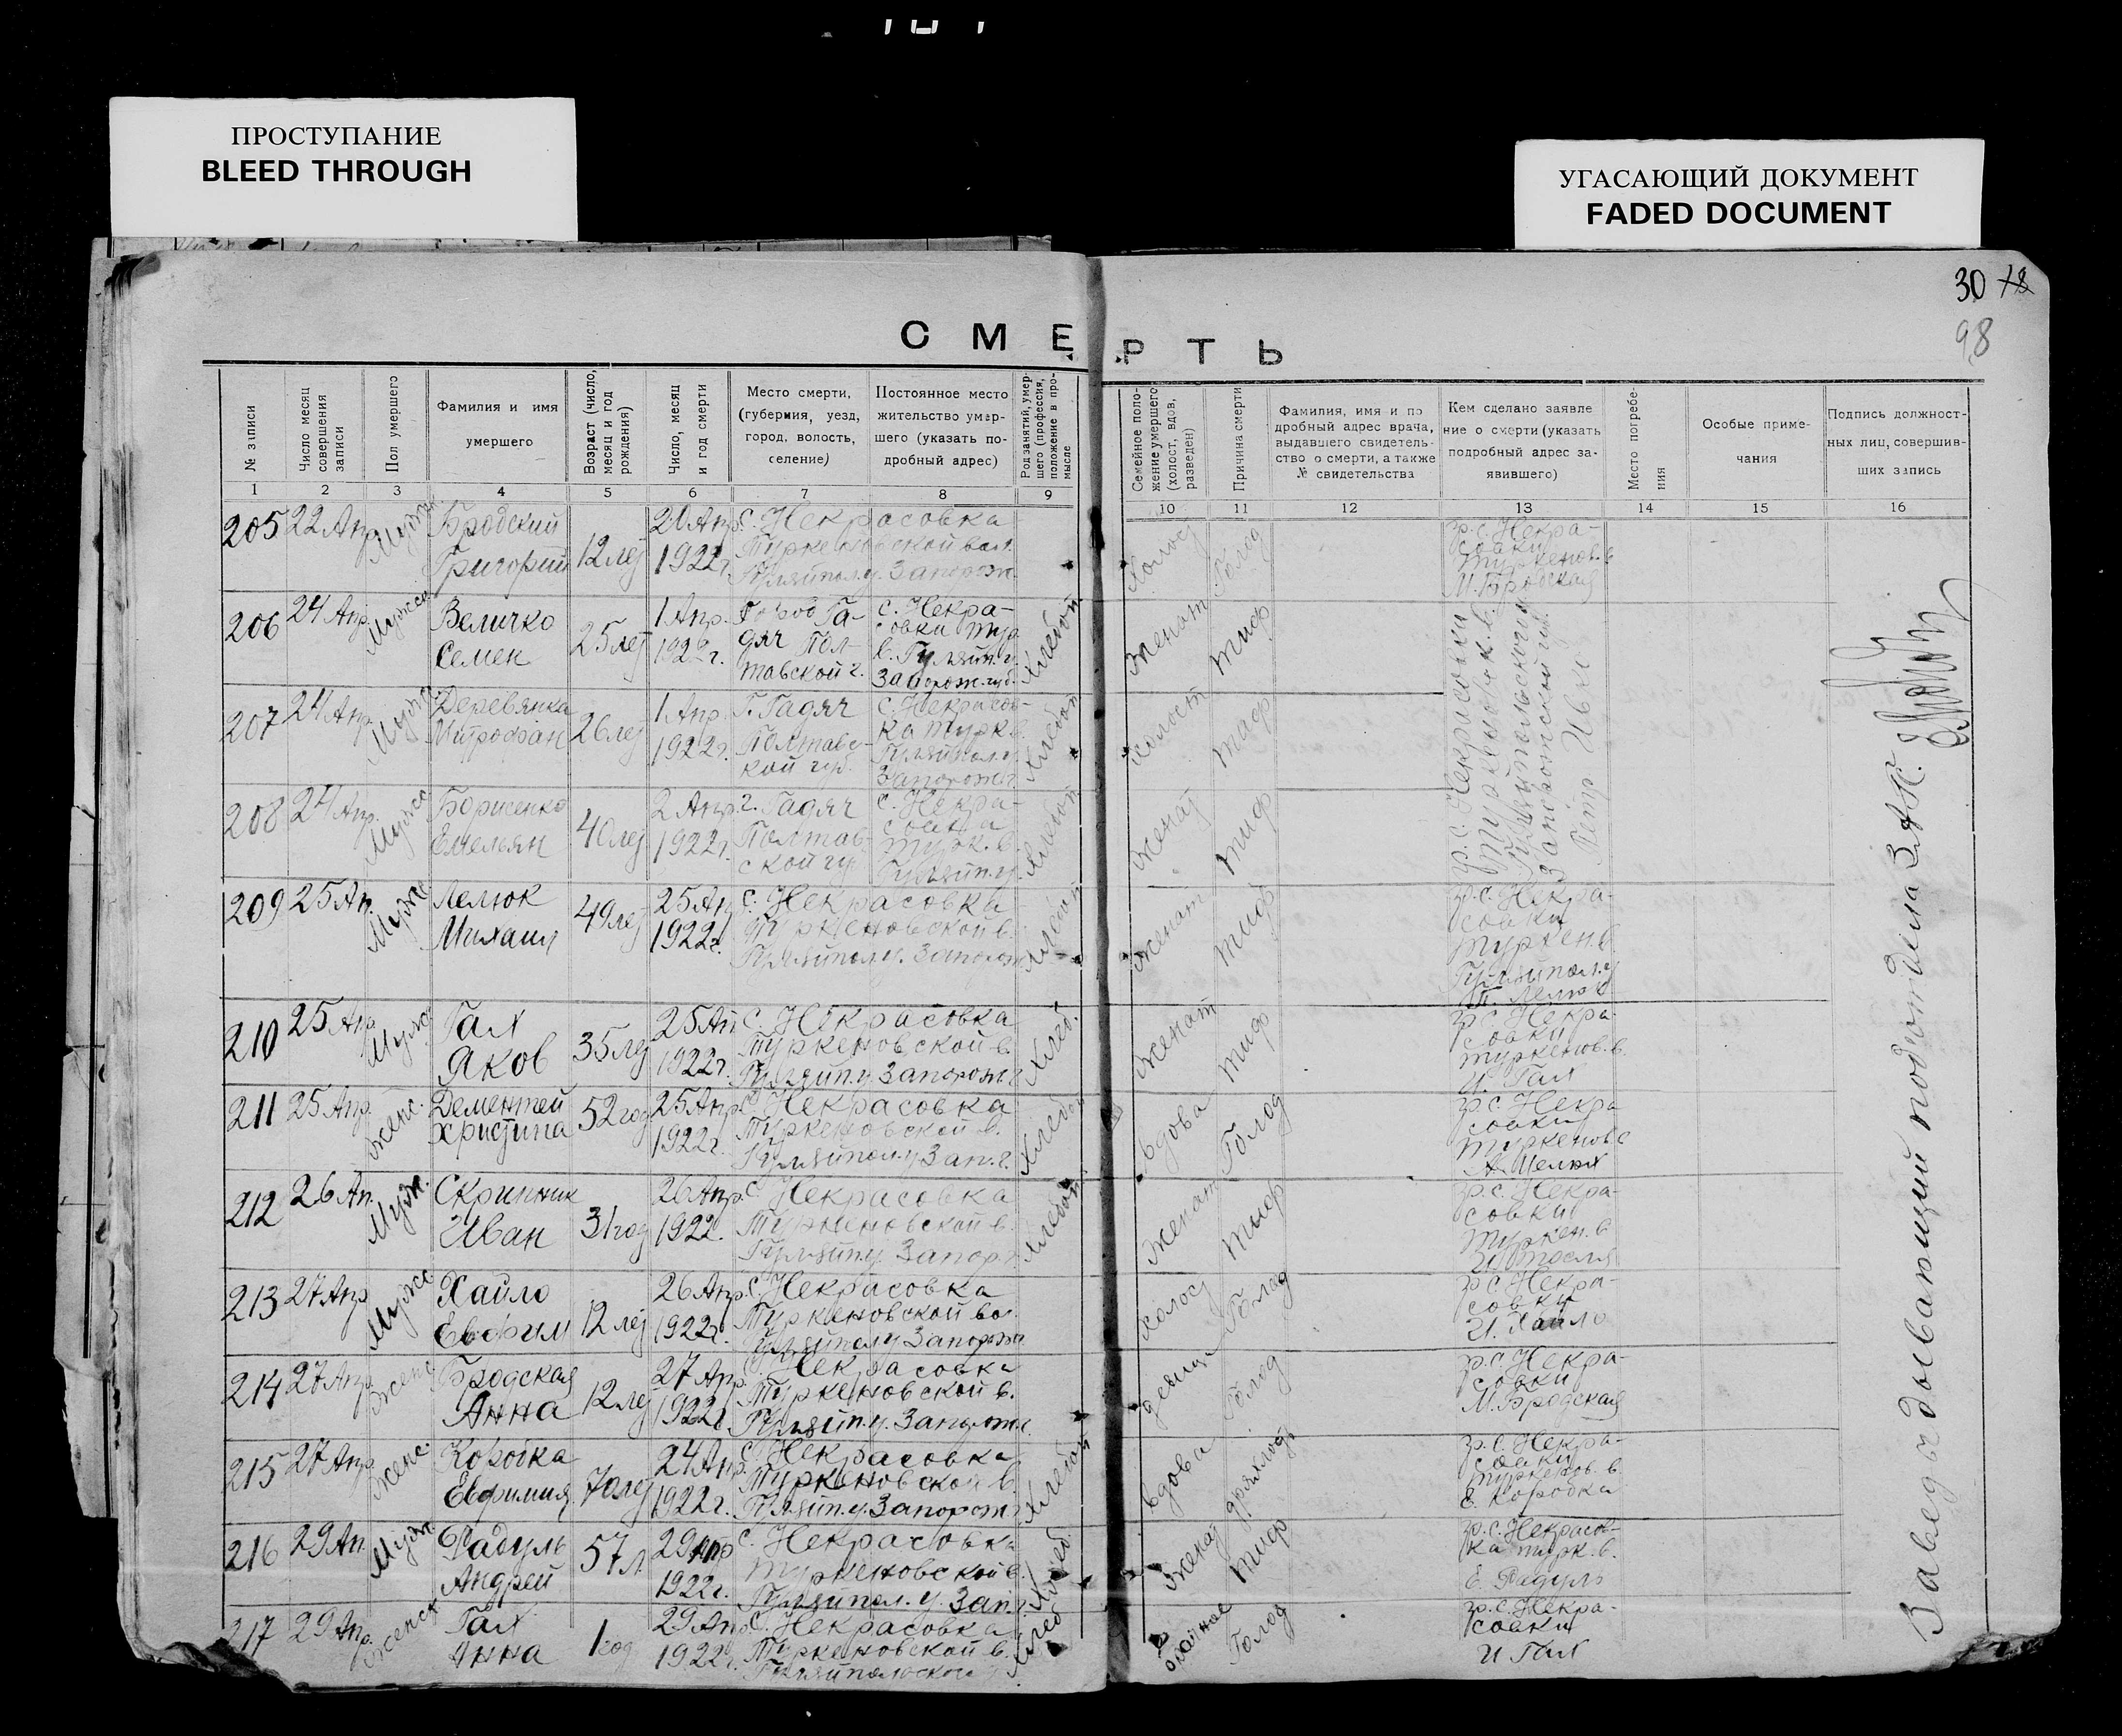 ПРОСТУПАНИЕ
BLEED THROUGH
УГАСАЮЩИЙ ДОКУМЕНТ
FADED DOCUMENT
30 18
98
СМЕРТЬ
№ записи
Число месяц совершения записи
Пол умершего
Фамилия и имя умершего
Возраст (число, месяц и год рождения)
Число, месяц и год смерти
Место смерти, (губерния, уезд, город, волость, селение)
Постоянное место жительство умершего (указать подробный адрес)
Род занятий, умершего (профессия, положение в промысле
Семейное положение умершего (холост, вдов, разведен)
Причина смерти
Фамилия, имя и подробный адрес врача, выдавшего свидетельство о смерти, а также № свидетельства
Кем сделано заявление о смерти (указать подробный адрес заявившего)
Место погребения
Особые примечания
Подпись должностных лиц, совершивших запись
1 2 3 4 5 6 7 8 9 10 11 12 13 14 15 16
205 22 Апр. Мужск. Бродский Григорий 12 лет 20 Апр. 1922 г. с. Некрасовка Туркеновской вол. Гуляйпол. у. Запорож. холост Голод гр. с. Некрасовки Туркенов. в. М. Бродская
206 24 Апр. Мужск. Величко Семен 25 лет 1 Апр. 1922 г. Город Гадяч Полтавской г. с. Некрасовки Тур. в. Гуляйп. у. Запорож. губ. Хлебоп. женат тиф гр. с. Некрасовки Туркеновск. в. Гуляйпольского у. Запорожской губ. Петр
207 24 Апр. Мужс. Деревянка Митрофан 26 лет 1 Апр. 1922 г. Г. Гадяч Полтавской губ. с. Некрасовка Турк. в. Гуляйпол. у. Запорож. г. Хлебоп. холост тиф
208 24 Апр. Мужс. Борисенко Емельян 40 лет 2 Апр. 1922 г. г. Гадяч Полтавской гу. с. Некрасовка Турк. в. Гуляйп. у. Хлебоп. женат тиф
209 25 Ап. Мужс. Лелюк Михаил 49 лет 25 Апр 1922 г. с. Некрасовка Туркеновской в. Гуляйпол. у. Запорож. Хлебоп. женат тиф гр. с. Некрасовки Туркен. в. Гуляйпол. у. Лелюк
210 25 Апр Мужс Гал Яков 35 лет 25 Ап 1922 г. с. Некрасовка Туркеновской в. Гуляйп. у. Запорож. г. Хлеб. женат тиф гр. с. Некрасовки Туркенов. в. И. Гал
211 25 Апр. женс. Дементей Христина 52 год 25 Апр. 1922 г. с. Некрасовка Туркеновской в. Гуляйпол. у. Зап. г. Хлебоп. вдова Голод гр. с. Некрасовки Туркенов. в.
212 26 Ап. Мужс. Скрипник Иван 31 год 26 Апр. 1922. с. Некрасовка Туркеновской в. Гуляйп. у. Запор. г. Хлебоп. женат тиф гр. с. Некрасовки Туркен. в.
213 27 Апр Мужс Хайло Евфим 12 лет 26 Апр. 1922 г. с. Некрасовка Туркеновской вол. Гуляйпол. у. Запорож. холост Голод гр. с. Некрасовки И. Хайло
214 27 Апр. женс. Бродская Анна 12 лет 27 Апр. 1922 г. с. Некрасовка Туркеновской в. Гуляйп. у. Запорож. г. Голод гр. с. Некрасовки М. Бродская
215 27 Апр. женс. Коробка Евфимия 70 лет 24 Апр. 1922 г. с. Некрасовка Туркеновской в. Гуляйп. у. Запорож. г. Хлебоп. вдова гр. с. Некрасовки Туркенов. в. Е. Коробка
216 29 Ап. Мужс Радуль Андрей 57 л. 29 Апр 1922 г. с. Некрасовка Туркеновской в. Гуляйпол. у. Зап. г. Хлеб. женат тиф гр. с. Некрасовка турк. в. Е. Радуль
217 29 Апр. женск Гал Анна 1 год 29 Апр 1922 г. с. Некрасовка Туркеновской в. Гуляйпольской Хлеб Голод гр. с. Некрасовки И Гал
Заведывающий подотдела ЗАГС.